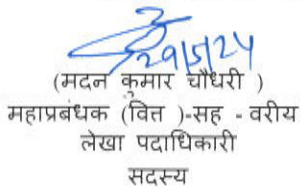 29/5/24
(मदन कुमार चौधरी )
महाप्रबंधक (वित्त )-सह - वरीय
लेखा पदाधिकारी
सदस्य